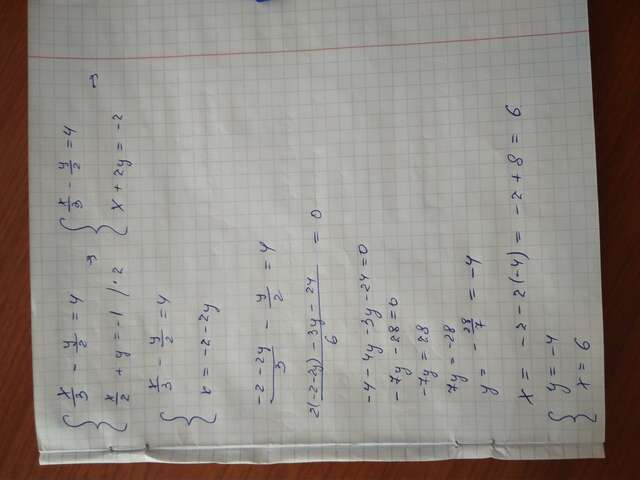 { x/3 - y/2 = 4 => { x/3 - y/2 = 4 =>
x/2 + y = -1 / · 2 x + 2y = -2
{ x/3 - y/2 = 4
x = -2 - 2y
(-2 - 2y)/3 - y/2 = 4
(2(-2-2y) - 3y - 24)/6 = 0
-4 - 4y - 3y - 24 = 0
-7y - 28 = 0
-7y = 28
7y = -28
y = - 28/7 = -4
x = -2 - 2(-4) = -2 + 8 = 6
{ y = -4
x = 6